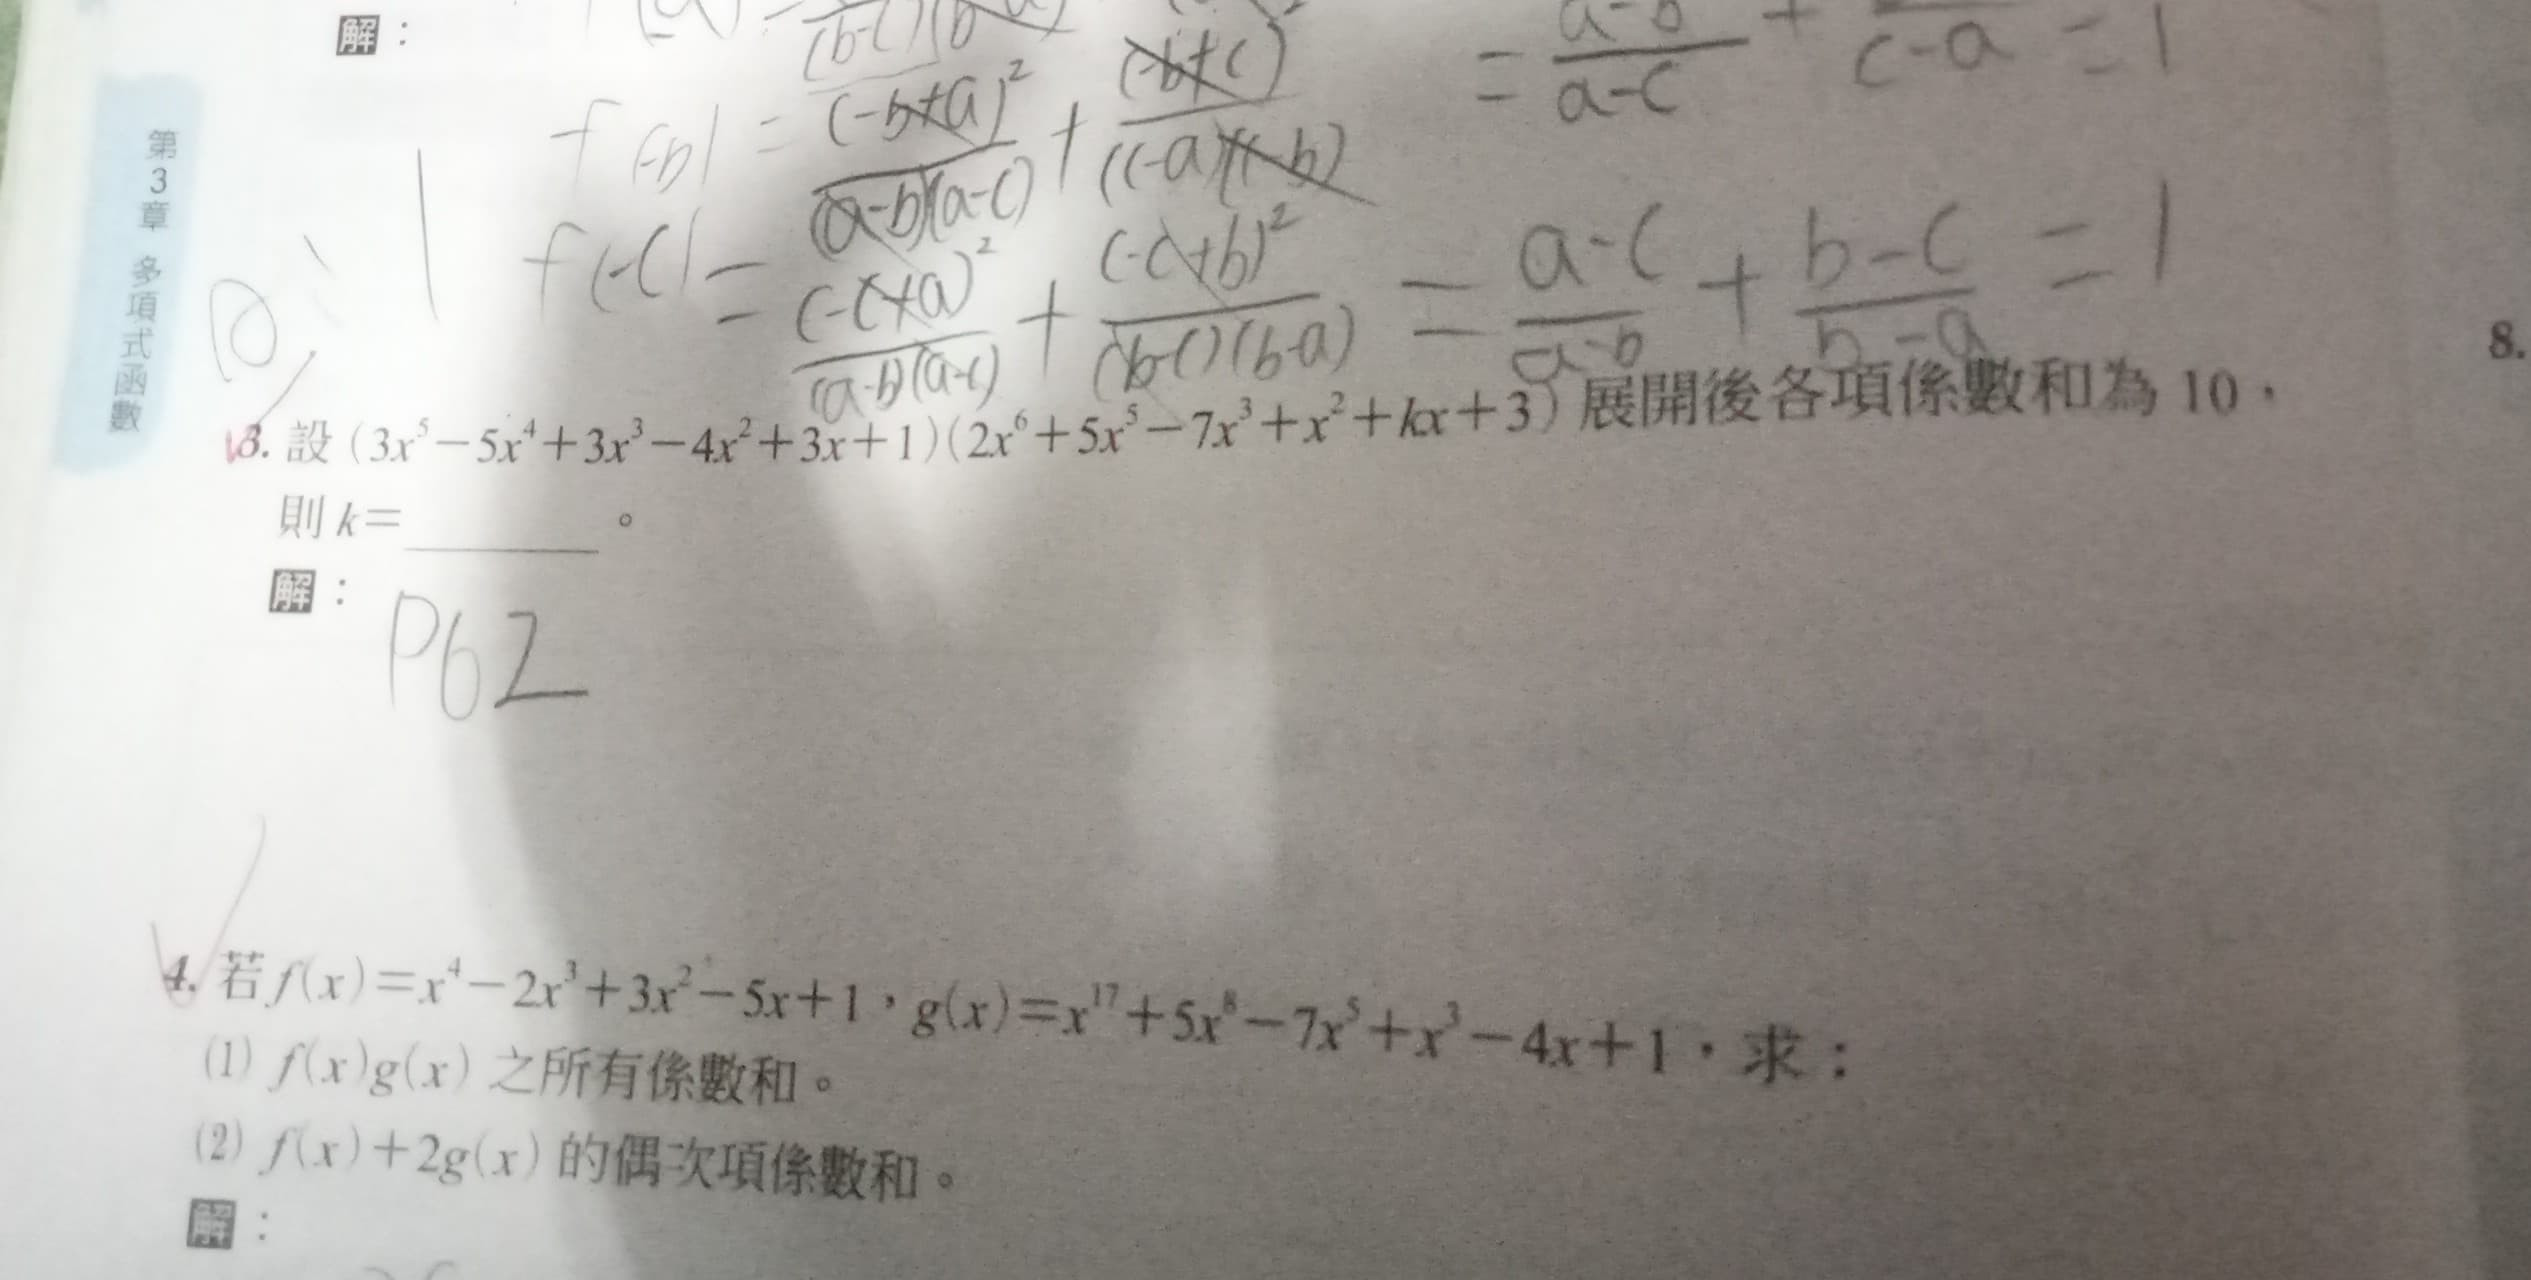 解：
= (a-b)/(a-c) + /(c-a) = 1
f(-b) = (-b+a)²/((a-b)(a-c)) + (-b+c)²/((c-a)(c-b))
f(-c) = (-c+a)²/((a-b)(a-c)) + (-c+b)²/((b-c)(b-a)) = (a-c)/(a-b) + (b-c)/(b-a) = 1
第3章 多項式函數
8.
3. 設 (3x⁵－5x⁴＋3x³－4x²＋3x＋1)(2x⁶＋5x⁵－7x³＋x²＋kx＋3) 展開後各項係數和為 10，
則 k＝　　　。
解：
P62
4. 若 f(x)＝x⁴－2x³＋3x²－5x＋1，g(x)＝x¹⁷＋5x⁸－7x⁵＋x³－4x＋1，求：
(1) f(x)g(x) 之所有係數和。
(2) f(x)＋2g(x) 的偶次項係數和。
解：